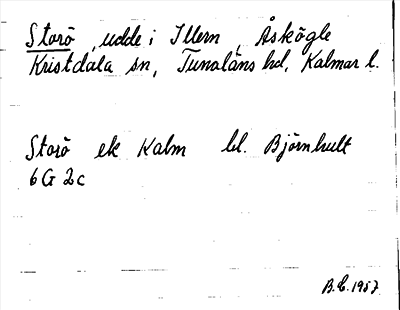 Storö, udde i Illern, Åskögle
Kristdala sn, Tunaläns hd, Kalmar l.
Storö ek Kalm bl. Björnhult
6G 2c
B.E. 1957